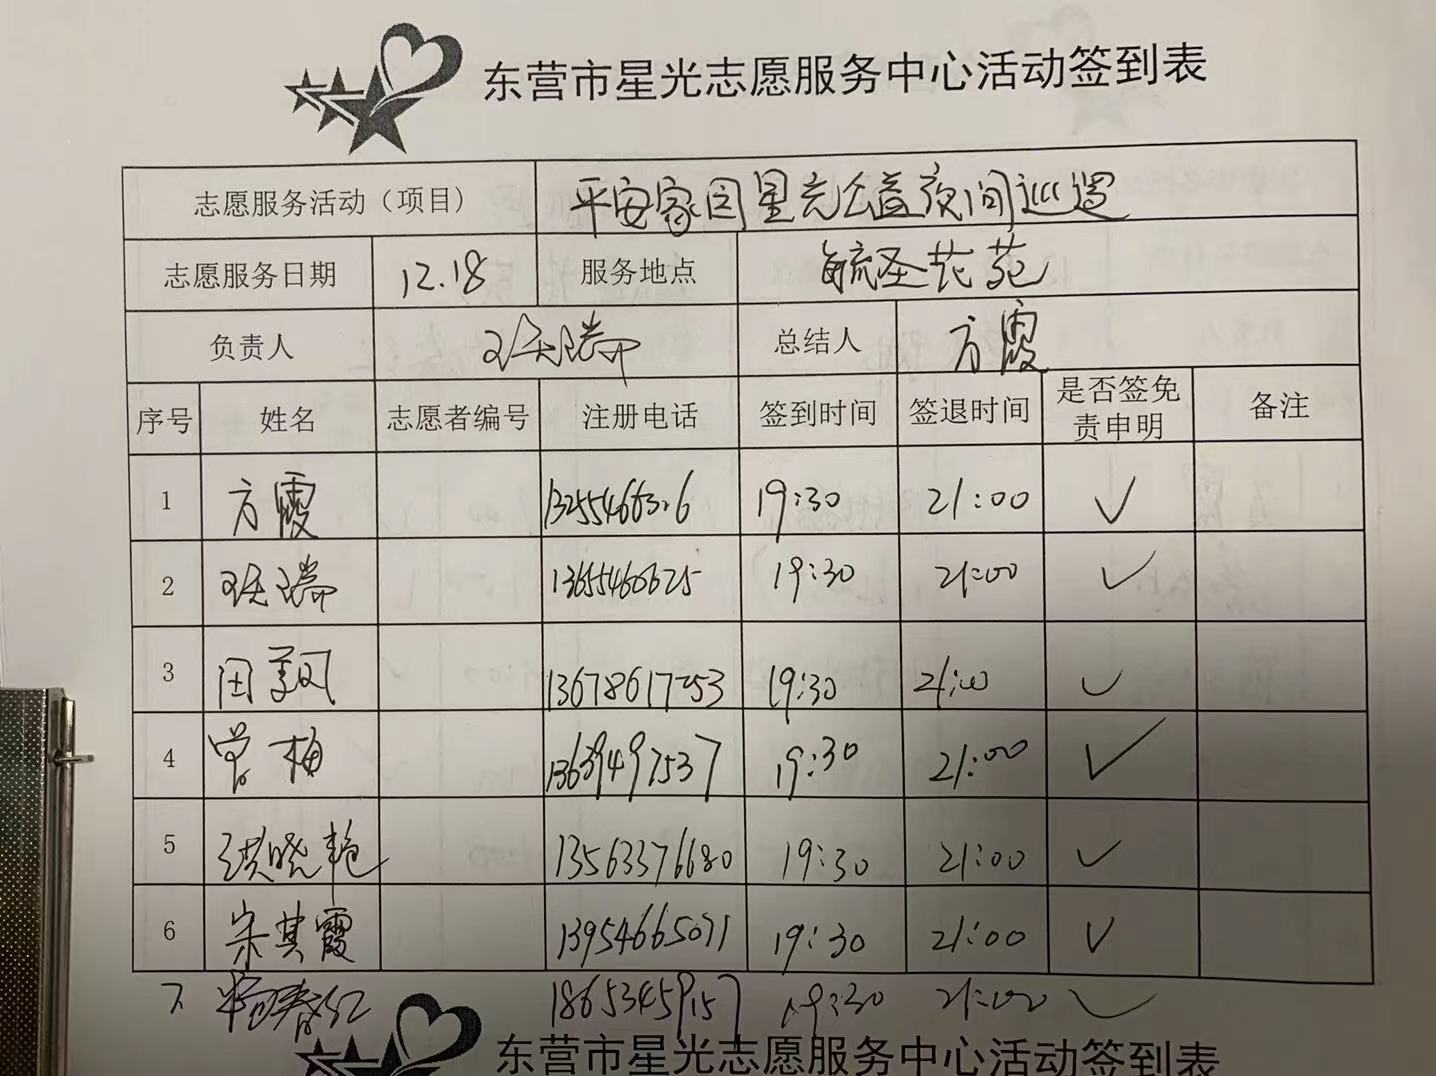 东营市星光志愿服务中心活动签到表
志愿服务活动（项目） 平安家园星光公益夜间巡逻
志愿服务日期 12.18 服务地点 毓圣花苑
负责人 瑞 总结人 方霞
序号 姓名 志愿者编号 注册电话 签到时间 签退时间 是否签免责申明 备注
1 方霞 19:30 21:00 ✓
2 瑞 13655460625 19:30 21:00 ✓
3 田美凤 13678617253 19:30 21:00 ✓
4 曾梅 13639497537 19:30 21:00 ✓
5 洪晓艳 13563376680 19:30 21:00 ✓
6 宋其霞 13954665071 19:30 21:00 ✓
7 春红 18653459157 19:30 21:00 ✓
东营市星光志愿服务中心活动签到表